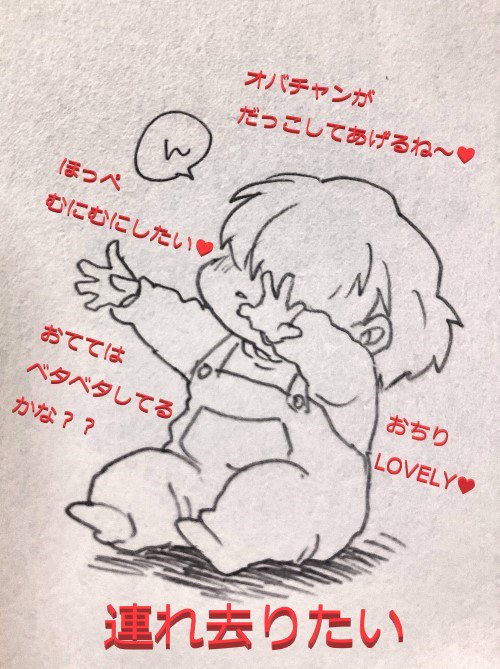 オバチャンが
だっこしてあげるね〜♥
ん
ほっぺ
むにむにしたい♥
おてては
ベタベタしてる
かな？？
おちり
LOVELY♥
連れ去りたい